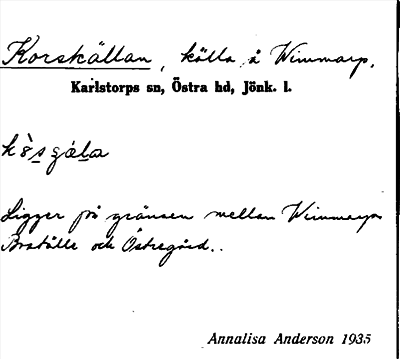 Korskällan, källa å Wimmarp.
Karlstorps sn, Östra hd, Jönk. l.
Ligger på gränsen mellan Wimmarps
och Östregård..
Annalisa Anderson 1935